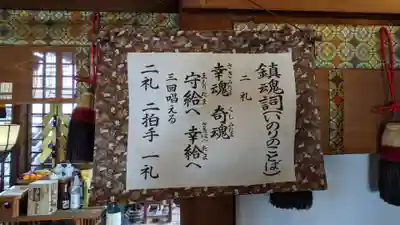 鎮魂詞(いのりのことば)
二礼
幸魂 奇魂
守給へ 幸給へ
三回唱える
二礼 二拍手 一礼